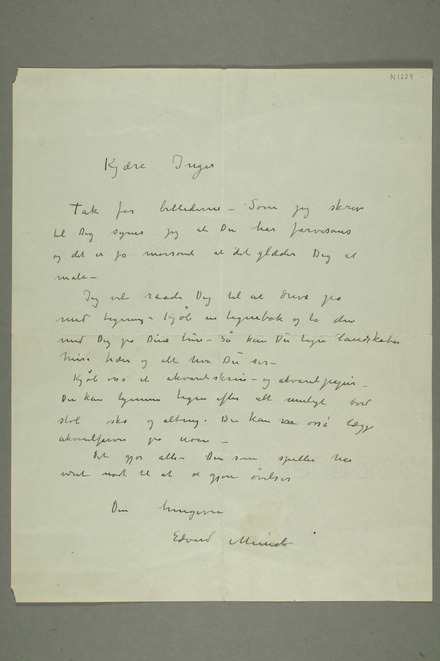 N1224
Kjære Inger
Tak for billederne – Som jeg skrev
til Dig synes jeg at Du har farvesans
og det er jo morsomt at det glæder Dig at
male –
Jeg vil raade Dig til at drive på
med tegning – Kjøb en tegnebok og ta den
med Dig på Dine ture – Så kan Du tegne landskaber
huse trær og alt hva Du ser –
Kjøb også et akvarelskrin – og akvarelpapir –
Du kan hjemme tegne efter alt muligt bord
stol sko og alting – Du kan også lægge
akvarelfarve på noen –
Det gjør alle – Den som spiller har
været nødt til at gjøre øvelser
Din hengivne
Edvard Munch